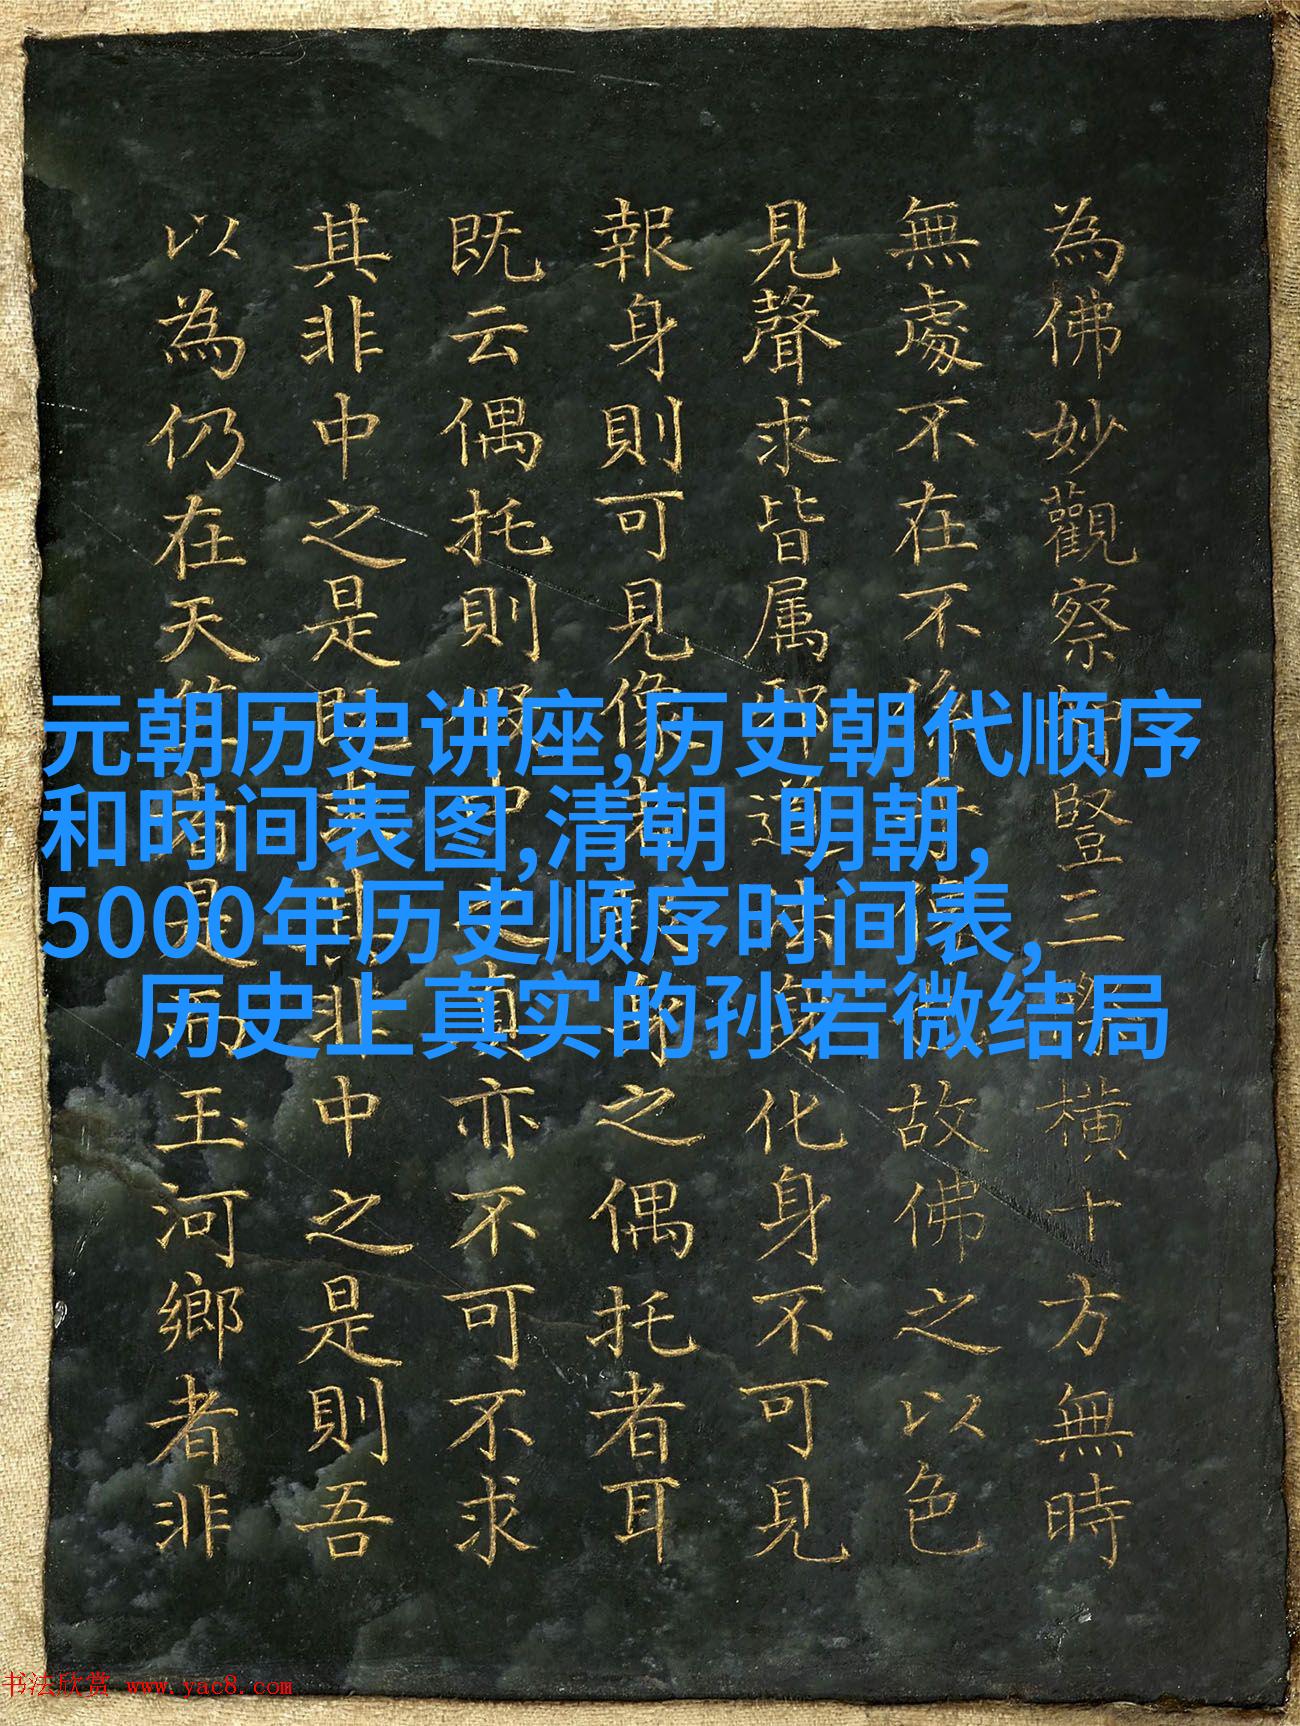 為佛妙觀察豎三際橫十方無時
無處不在不故佛之以色
見聲求皆属邪道法身化身不可見
報身則可見像者之偶托者耳
既云偶托則假中之真亦不可不求
其非中之是其非中之是則吾
以為仍在天是而玉河鄉者非
元朝历史讲座,历史朝代顺序
和时间表图,清朝 明朝,
5000年历史顺序时间表,
历史上真实的孙若微结局
书法欣赏 www.yac8.com